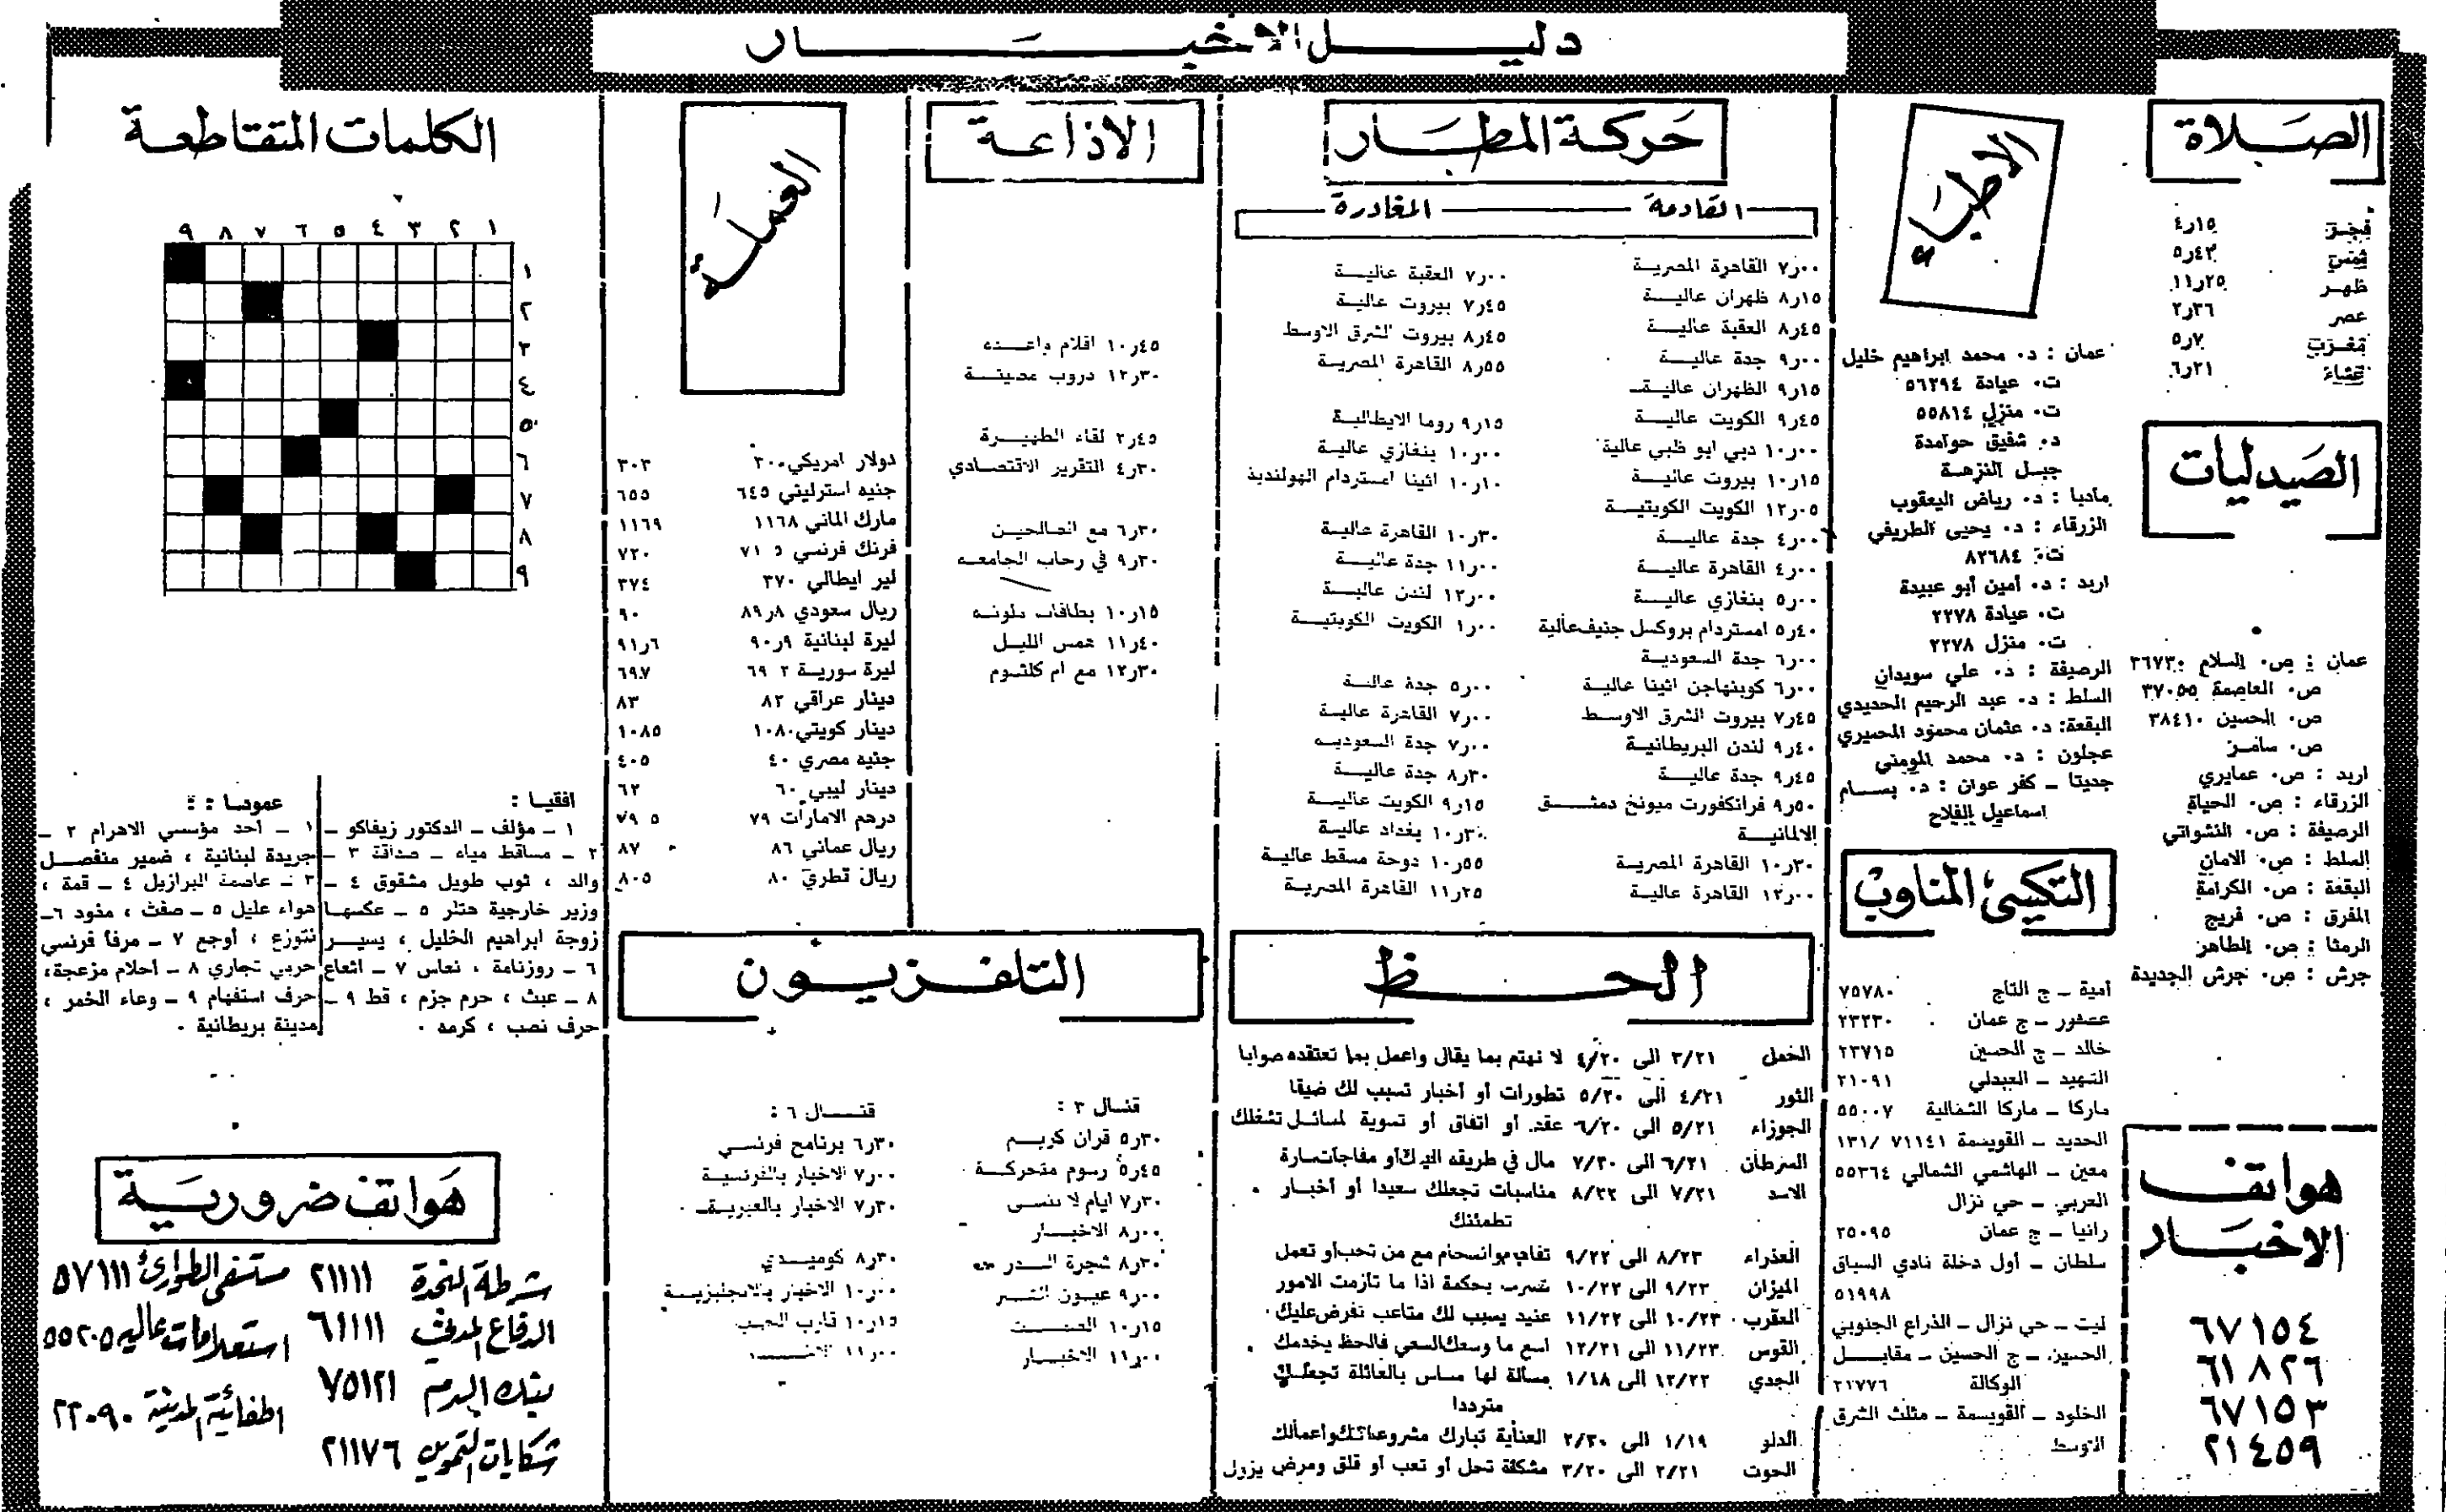 دليل الاخبار
الصلاة
فجر ١٥ر٤
شمس ٤٢ر٥
ظهر ٢٥ر١١
عصر ٣٦ر٢
مغرب ٧ر٥
عشاء ٢١ر٦
الصيدليات
عمان : ص٠ السلام ٣٦٧٣٠
ص٠ العاصمة ٣٧٠٥٥
ص٠ الحسين ٣٨٤١٠
ص٠ سامر
اربد : ص٠ عمايري
الزرقاء : ص٠ الحياة
الرصيفة : ص٠ النشواتي
السلط : ص٠ الامان
البقعة : ص٠ الكرامة
المفرق : ص٠ فريج
الرمثا : ص٠ الطاهر
جرش : ص٠ جرش الجديدة
هواتف
الاخبار
٦٧١٥٤
٦١٨٢٦
٦٧١٥٣
٢١٤٥٩
الاطباء
عمان : د٠ محمد ابراهيم خليل
ت٠ عيادة ٥٦٢٩٤
ت٠ منزل ٥٥٨١٤
د٠ شفيق حوامدة
جبل النزهة
مادبا : د٠ رياض اليعقوب
الزرقاء : د٠ يحيى الطريفي
ت٠ ٨٢٦٨٤
اربد : د٠ أمين أبو عبيدة
ت٠ عيادة ٢٢٧٨
ت٠ منزل ٢٢٧٨
الرصيفة : د٠ علي سويدان
السلط : د٠ عبد الرحيم الحديدي
البقعة: د٠ عثمان محمود المصيري
عجلون : د٠ محمد المومني
جديتا ـ كفر عوان : د٠ بسام
اسماعيل الفلاح
التكسي المناوب
أمية ـ ج التاج ٧٥٧٨٠
عصفور ـ ج عمان ٢٣٢٣٠
خالد ـ ج الحسين ٢٣٧١٥
الشهيد ـ العبدلي ٢١٠٩١
ماركا ـ ماركا الشمالية ٥٥٠٠٧
الحديد ـ القويسمة ٧١١٤١ /١٣١
معين ـ الهاشمي الشمالي ٥٥٣٦٤
العربي ـ حي نزال
رانيا ـ ج عمان ٢٥٠٩٥
سلطان ـ أول دخلة نادي السباق
٥١٩٩٨
ليت ـ حي نزال ـ الذراع الجنوبي
الحسين ـ ج الحسين ـ مقابل
الوكالة ٢١٧٧٦
الخلود ـ القويسمة ـ مثلث الشرق
الاوسط
حركة المطار
القادمة
٠٠ر٧ القاهرة المصرية
١٥ر٨ ظهران عالية
٤٥ر٨ العقبة عالية
٠٠ر٩ جدة عالية
١٥ر٩ الظهران عالية
٤٥ر٩ الكويت عالية
٠٠ر١٠ دبي ابو ظبي عالية
١٥ر١٠ بيروت عالية
٠٥ر١٢ الكويت الكويتية
٠٠ر٤ جدة عالية
٠٠ر٤ القاهرة عالية
٠٠ر٥ بنغازي عالية
٤٠ر٥ امستردام بروكسل جنيف عالية
٠٠ر٦ جدة السعودية
٠٠ر٦ كوبنهاجن اثينا عالية
٤٥ر٧ بيروت الشرق الاوسط
٤٠ر٩ لندن البريطانية
٤٥ر٩ جدة عالية
٥٠ر٩ فرانكفورت ميونخ دمشق
الالمانية
٣٠ر١٠ القاهرة المصرية
٠٠ر١٢ القاهرة عالية
المغادرة
٠٠ر٧ العقبة عالية
٤٥ر٧ بيروت عالية
٤٥ر٨ بيروت الشرق الاوسط
٥٥ر٨ القاهرة المصرية
١٥ر٩ روما الايطالية
٠٠ر١٠ بنغازي عالية
١٠ر١٠ اثينا امستردام الهولندية
٣٠ر١٠ القاهرة عالية
٠٠ر١١ جدة عالية
٠٠ر١٢ لندن عالية
٠٠ر١ الكويت الكويتية
٠٠ر٥ جدة عالية
٠٠ر٧ القاهرة عالية
٠٠ر٧ جدة السعودية
٣٠ر٨ جدة عالية
١٥ر٩ الكويت عالية
٣٠ر١٠ بغداد عالية
٥٥ر١٠ دوحة مسقط عالية
٢٥ر١١ القاهرة المصرية
الحظ
الحمل ٣/٢١ الى ٤/٢٠ لا تهتم بما يقال واعمل بما تعتقده صوابا
الثور ٤/٢١ الى ٥/٢٠ تطورات أو أخبار تسبب لك ضيقا
الجوزاء ٥/٢١ الى ٦/٢٠ عقد او اتفاق أو تسوية لمسائل تشغلك
السرطان ٦/٢١ الى ٧/٢٠ مال في طريقه اليك أو مفاجآت سارة
الاسد ٧/٢١ الى ٨/٢٢ مناسبات تجعلك سعيدا أو أخبار
تطمئنك
العذراء ٨/٢٣ الى ٩/٢٢ تفاهم وانسجام مع من تحب أو تعمل
الميزان ٩/٢٣ الى ١٠/٢٢ تصرف بحكمة اذا ما تأزمت الامور
العقرب ١٠/٢٣ الى ١١/٢٢ عنيد يسبب لك متاعب تفرض عليك
القوس ١١/٢٣ الى ١٢/٢١ اسع ما وسعك السعي فالحظ يخدمك
الجدي ١٢/٢٢ الى ١/١٨ مسألة لها مساس بالعائلة تجعلك
مترددا
الدلو ١/١٩ الى ٢/٢٠ العناية تبارك مشروعاتك واعمالك
الحوت ٢/٢١ الى ٣/٢٠ مشكلة تحل أو تعب أو قلق ومرض يزول
الاذاعة
٤٥ر١٠ اقلام واعدة
٣٠ر١٢ دروب مضيئة
٤٥ر٢ لقاء الظهيرة
٣٠ر٤ التقرير الاقتصادي
٣٠ر٦ مع الصالحين
٣٠ر٩ في رحاب الجامعة
١٥ر١٠ بطاقات ملونة
٤٠ر١١ همس الليل
٣٠ر١٢ مع ام كلثوم
العملة
دولار امريكي ٣٠٠ ٣٠٣
جنيه استرليني ٦٤٥ ٦٥٥
مارك الماني ١١٦٨ ١١٦٩
فرنك فرنسي ٥ ٧١ ٧٢٠
لير ايطالي ٣٧٠ ٣٧٤
ريال سعودي ٨ر٨٩ ٩٠
ليرة لبنانية ٩ر٩٠ ٦ر٩١
ليرة سورية ٢ ٦٩ ٦٩٫٧
دينار عراقي ٨٢ ٨٣
دينار كويتي ١٠٨٠ ١٠٨٥
جنيه مصري ٤٠ ٤٠٥
دينار ليبي ٦٠ ٦٢
درهم الامارات ٧٩ ٥ ٧٩
ريال عماني ٨٦ ٨٧
ريال قطري ٨٠ ٨٠٥
التلفزيون
قنال ٣ :
٣٠ر٥ قران كريم
٤٥ر٥ رسوم متحركة
٣٠ر٧ ايام لا تنسى
٠٠ر٨ الاخبار
٣٠ر٨ شجرة الدر
٠٠ر٩ عيون
١٥ر١٠ الصمت
٠٠ر١١ الاخبار
قنال ٦ :
٣٠ر٦ برنامج فرنسي
٠٠ر٧ الاخبار بالفرنسية
٣٠ر٧ الاخبار بالعبرية
٣٠ر٨ كوميدي
٠٠ر١٠ الاخبار بالانجليزية
١٥ر١٠ قارب الحب
٠٠ر١١
الكلمات المتقاطعة
١ ٢ ٣ ٤ ٥ ٦ ٧ ٨ ٩
١
٢
٣
٤
٥
٦
٧
٨
٩
افقيا :
١ ـ مؤلف ـ الدكتور زيفاكو ـ
٢ ـ مساقط مياه ـ صداقة ٣ ـ
والد ، ثوب طويل مشقوق ٤ ـ
وزير خارجية هتلر ٥ ـ عكسها
زوجة ابراهيم الخليل ، يسير
٦ ـ روزنامة ، نعاس ٧ ـ اشعاع
٨ ـ عبث ، حرم جزم ، قط ٩ ـ
حرف نصب ، كرمه ٠
عموديا :
١ ـ أحد مؤسسي الاهرام ٢ ـ
جريدة لبنانية ، ضمير منفصل
٣ ـ عاصمة البرازيل ٤ ـ قمة ،
هواء عليل ٥ ـ صفت ، مذود ٦ ـ
نتوزع ، أوجع ٧ ـ مرفأ فرنسي
حربي تجاري ٨ ـ أحلام مزعجة،
حرف استفهام ٩ ـ وعاء الخمر ،
مدينة بريطانية ٠
هواتف ضرورية
شرطة النجدة ٢١١١١
الدفاع المدني ٦١١١١
بنك الدم ٧٥١٢١
شكايات التموين ٢١١٧٦
مستشفى الطوارئ ٥٧١١١
استعلامات عاليه ٥٥٢٠٥
اطفائية المدينة ٢٢٠٩٠